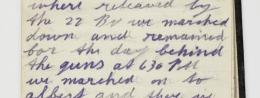 where relieved by
the 22 Bn we marched
down and remained
for the day behind
the guns at 630 PM
we marched on to
albert and there we